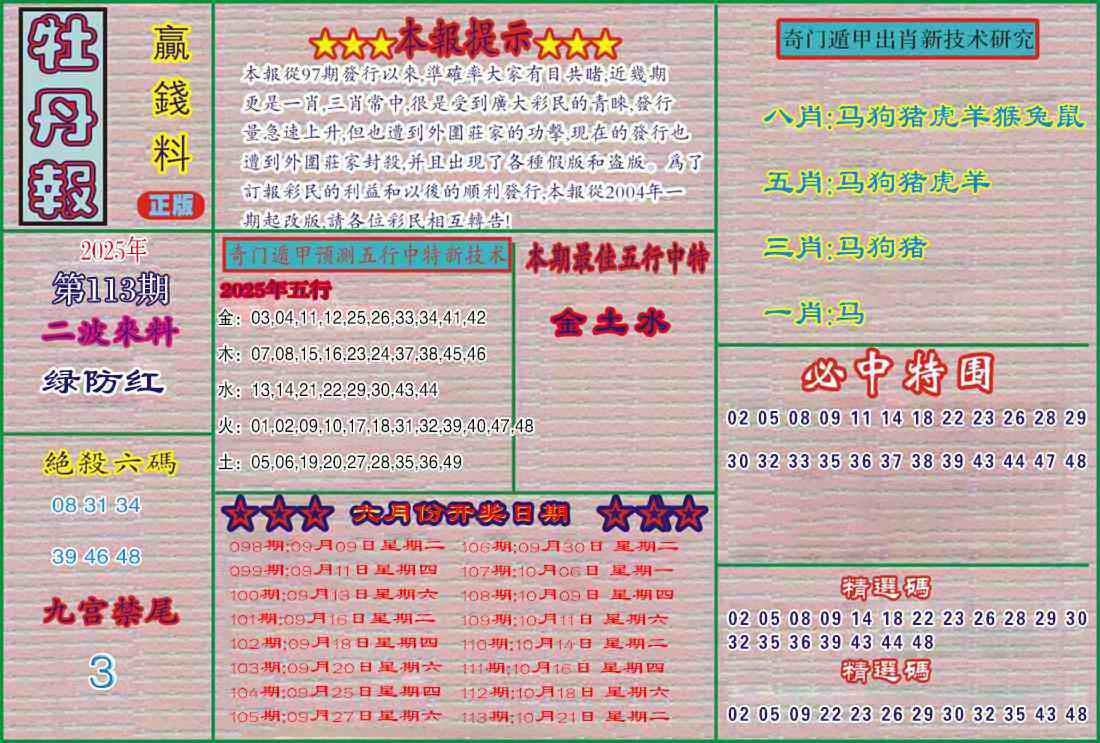 牡丹報
贏錢料
正版
★★★本報提示★★★
本報從97期發行以來,準確率大家有目共睹,近幾期
更是一肖,三肖常中,很是受到廣大彩民的青睞,發行
量急速上升,但也遭到外圍莊家的功擊,現在的發行也
遭到外圍莊家封殺,并且出現了各種假版和盗版。爲了
訂報彩民的利益和以後的順利發行,本報從2004年一
期起改版,請各位彩民相互轉告!
奇门遁甲出肖新技术研究
八肖:马狗猪虎羊猴兔鼠
五肖:马狗猪虎羊
三肖:马狗猪
一肖:马
2025年
第113期
二波來料
绿防红
奇门遁甲预测五行中特新技术
2025年五行
金：03,04,11,12,25,26,33,34,41,42
木：07,08,15,16,23,24,37,38,45,46
水：13,14,21,22,29,30,43,44
火：01,02,09,10,17,18,31,32,39,40,47,48
土：05,06,19,20,27,28,35,36,49
本期最佳五行中特
金土水
必中特围
02 05 08 09 11 14 18 22 23 26 28 29
30 32 33 35 36 37 38 39 43 44 47 48
絕殺六碼
08 31 34
39 46 48
九宫禁尾
3
★★★ 六月份开奖日期 ★★★
098期:09月09日星期二 106期:09月30日 星期二
099期:09月11日星期四 107期:10月06日 星期一
100期:09月13日星期六 108期:10月09日 星期四
101期:09月16日星期二 109期:10月11日 星期六
102期:09月18日星期四 110期:10月14日 星期二
103期:09月20日星期六 111期:10月16日 星期四
104期:09月25日星期四 112期:10月18日 星期六
105期:09月27日星期六 113期:10月21日 星期二
精選碼
02 05 08 09 14 18 22 23 26 28 29 30
32 35 36 39 43 44 48
精選碼
02 05 09 22 23 26 29 30 32 35 43 48